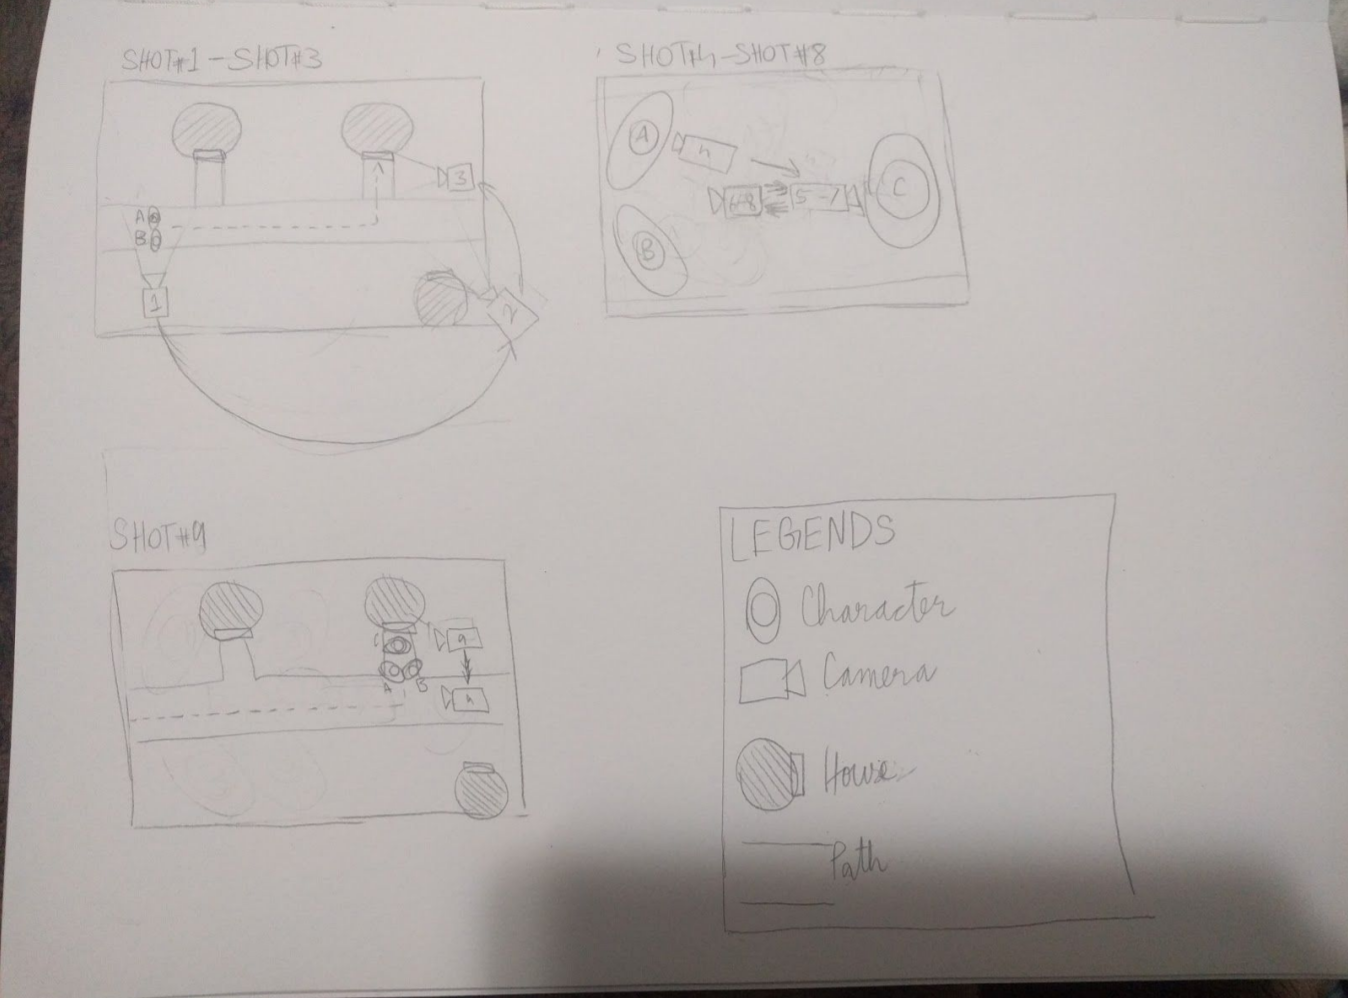 SHOT#1-SHOT#3
A
B
1
2
3
SHOT#4-SHOT#8
A
4
6-8
5-7
B
C
SHOT#9
C
A
B
9
LEGENDS
Character
Camera
House
Path